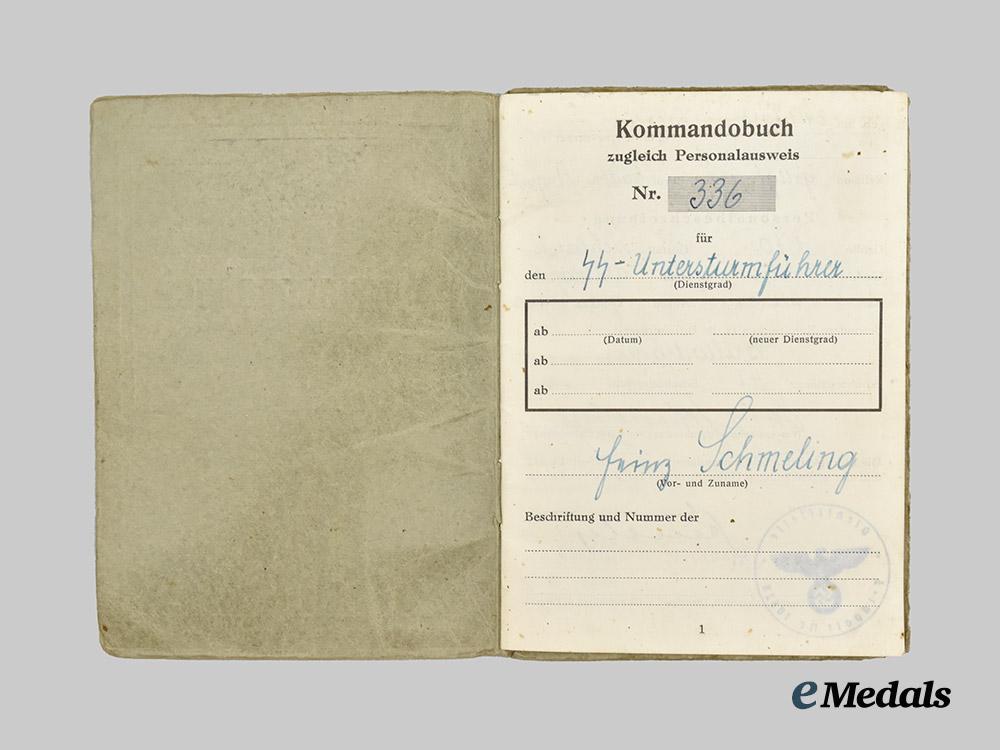 Kommandobuch
zugleich Personalausweis
Nr. 336
für
den ϟϟ-Untersturmführer
(Dienstgrad)
ab
(Datum) (neuer Dienstgrad)
ab
ab
Heinz Schmeling
(Vor- und Zuname)
Beschriftung und Nummer der
1
eMedals